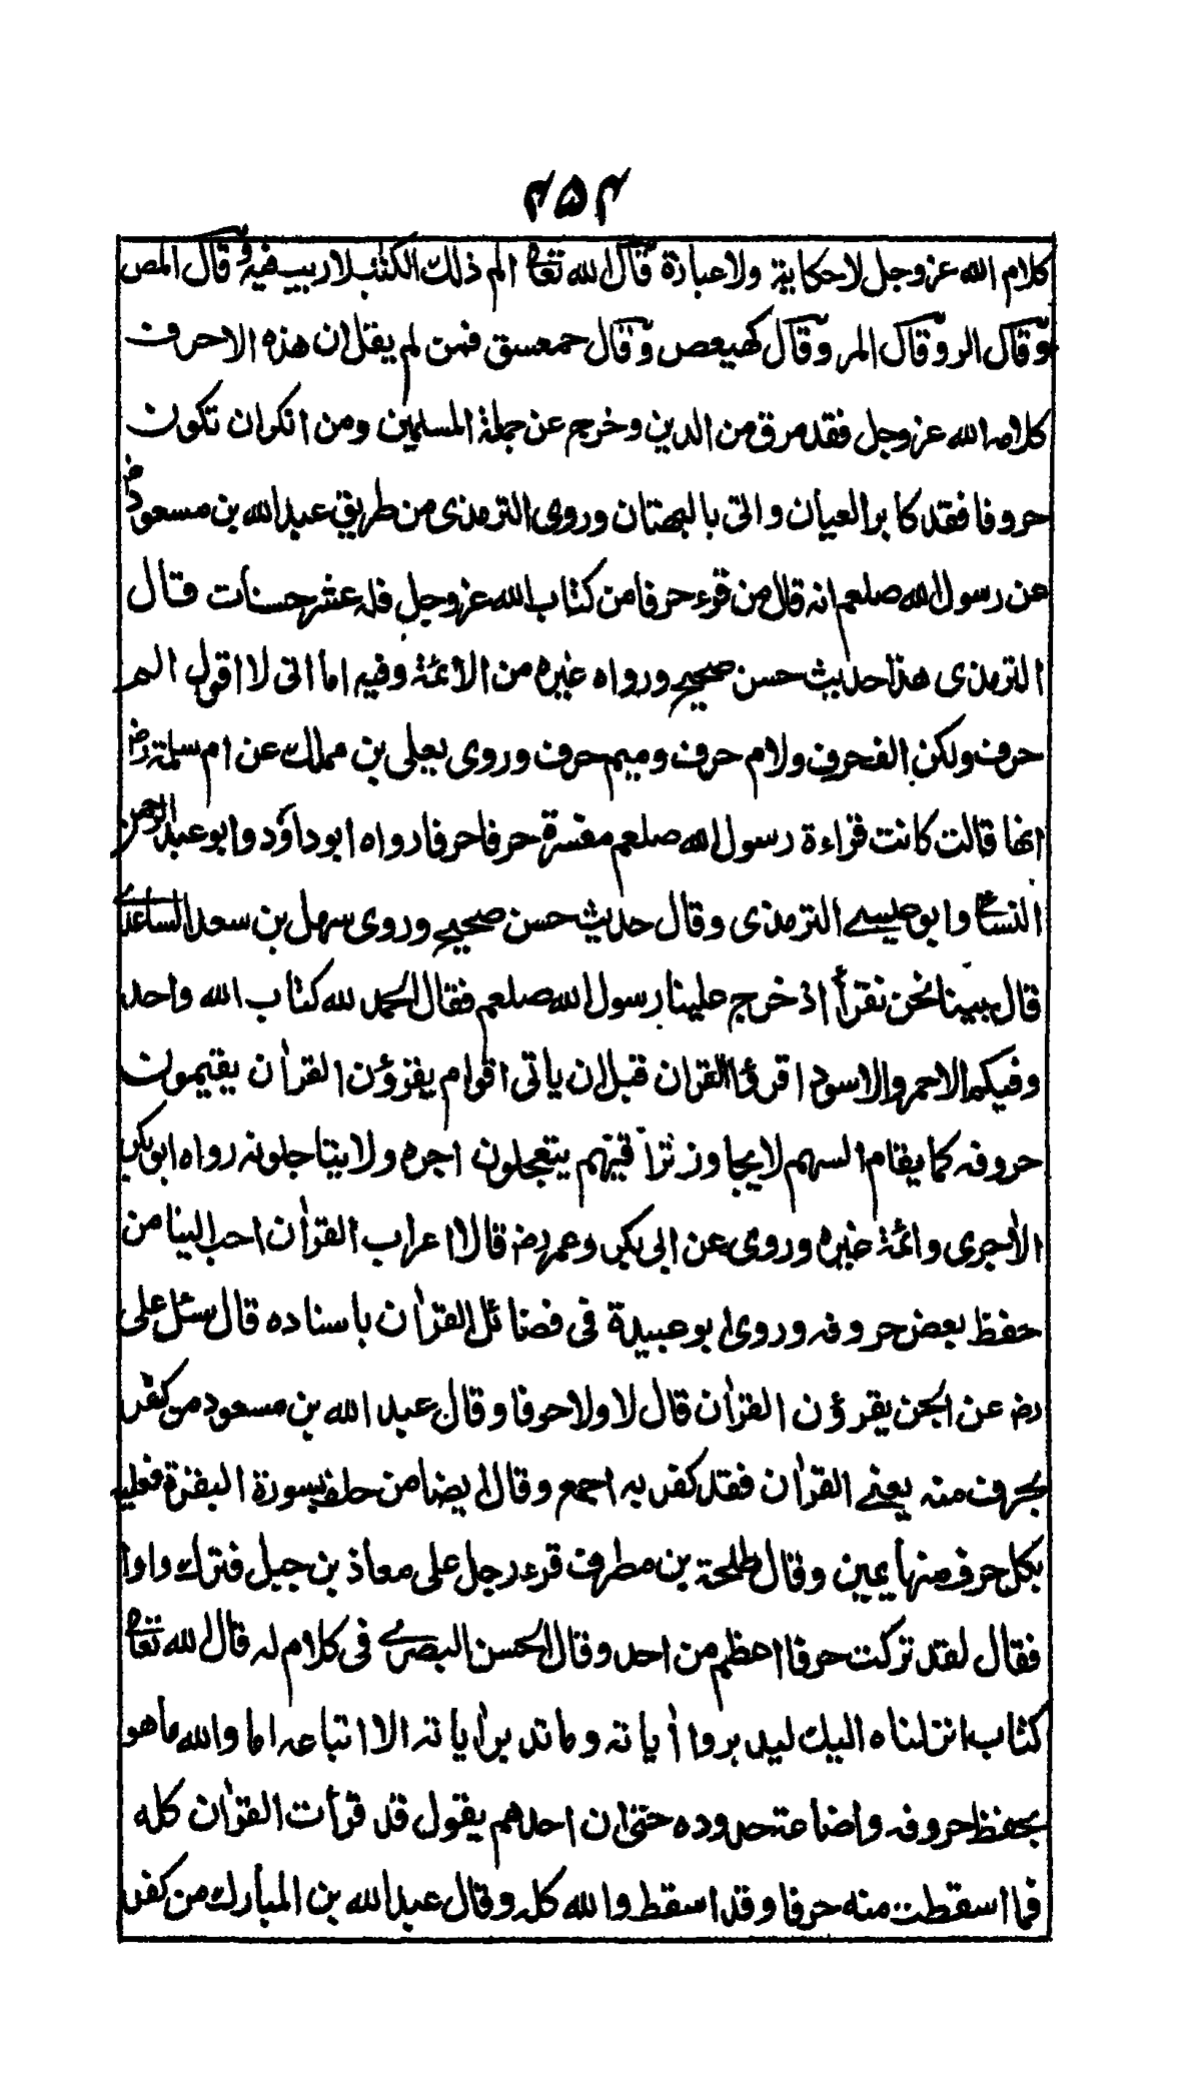 ۴۵۴
كلام الله عزوجل لا حكاية ولا عبارة قال الله تعالى الم ذلك الكتٰب لا ريب فيه وقال المص
وقال الر وقال المر وقال كهيعص وقال حمعسق فمن لم يقل ان هذه الاحرف
كلام الله عزوجل فقد مرق من الدين وخرج عن جملة المسلمين ومن انكران تكون
حروفا فقد كابر العيان واتى بالبهتان وروى الترمذى من طريق عبد الله بن مسعود رض
عن رسول الله صلعم انه قال من قرء حرفا من كتاب الله عزوجل فله عشر حسنات قال
الترمذى هذا حديث حسن صحيح ورواه غيره من الأئمة وفيه اما انى لا اقول الم
حرف ولكن الف حرف ولام حرف وميم حرف وروى يعلى بن مملك عن ام سلمة رض
انها قالت كانت قراءة رسول الله صلعم مفسرة حرفا حرفا رواه ابو داؤد وابو عبد الرحمن
النسائى وابو عيسى الترمذى وقال حديث حسن صحيح وروى سهل بن سعد الساعدى
قال بينا نحن نقرأ اذ خرج علينا رسول الله صلعم فقال الحمد لله كتاب الله واحد
وفيكم الاحمر والاسود اقرؤا القران قبل ان ياتى اقوام يقرؤن القرأن يقيمون
حروفه كما يقام السهم لا يجاوز تراقيهم يتعجلون اجره ولا يتاجلونه رواه ابو بكر
الأجرى وائمة غيره وروى عن ابى بكر وعمر رض قالا اعراب القرأن احب الينا من
حفظ بعض حروفه وروى ابو عبيدة فى فضائل القرأن باسناده قال سئل على
رض عن الجن يقرؤن القرأن قال لا ولا حرفا وقال عبد الله بن مسعود من كفر
بحرف منه يعنى القرأن فقد كفر به اجمع وقال ايضا من حلف بسورة البقرة فعليه
بكل حرف منها يمين وقال طلحة بن مطرف قرء رجل على معاذ بن جبل فترك واوا
فقال لقد تركت حرفا اعظم من احد وقال الحسن البصرى فى كلام له قال الله تعالى
كتاب انزلناه اليك ليدبروا أياته وما تدبر أياته الا اتباعه اما والله ما هو
بحفظ حروفه واضاعة حدوده حتى ان احدهم يقول قد قرأت القرأن كله
فما اسقطت منه حرفا وقد اسقط والله كله وقال عبد الله بن المبارك من كفر